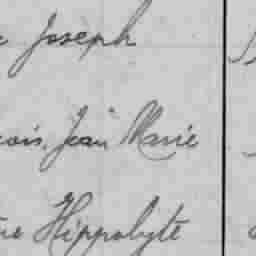 Joseph
çois, Jean Marie
Hippolyte